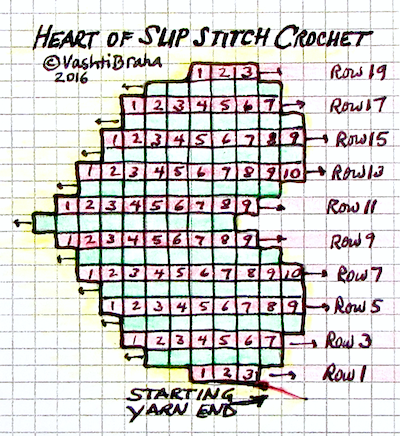 HEART OF SLIP STITCH CROCHET
©VashtiBraha
2016
1 2 3 Row 19
1 2 3 4 5 6 7 Row 17
1 2 3 4 5 6 7 8 9 Row 15
1 2 3 4 5 6 7 8 9 10 Row 13
1 2 3 4 5 6 7 8 9 Row 11
1 2 3 4 5 6 7 8 9 Row 9
1 2 3 4 5 6 7 8 9 10 Row 7
1 2 3 4 5 6 7 8 9 Row 5
1 2 3 4 5 6 7 Row 3
1 2 3 Row 1
STARTING
YARN END